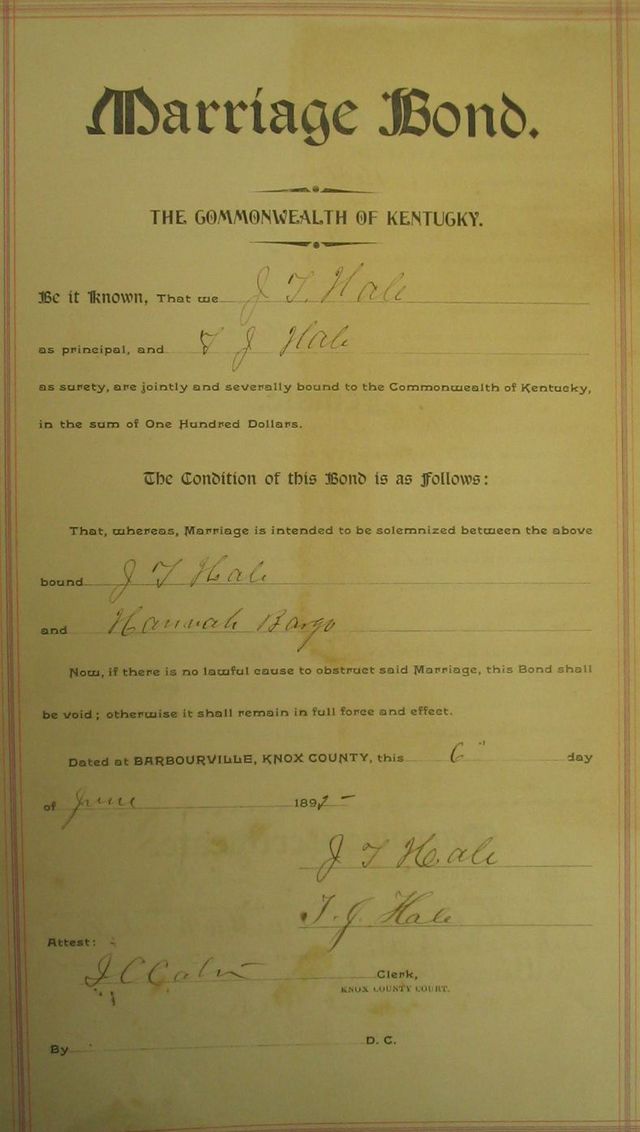 Marriage Bond.
THE COMMONWEALTH OF KENTUCKY.
Be it Known, That we J T. Hale
as principal, and T J Hale
as surety, are jointly and severally bound to the Commonwealth of Kentucky,
in the sum of One Hundred Dollars.
The Condition of this Bond is as Follows:
That, whereas, Marriage is intended to be solemnized between the above
bound J T Hale
and Hannah Bargo
Now, if there is no lawful cause to obstruct said Marriage, this Bond shall
be void; otherwise it shall remain in full force and effect.
Dated at BARBOURVILLE, KNOX COUNTY, this 6" day
of June 189
J T Hale
T. J. Hale
Attest:
Clerk,
KNOX COUNTY COURT.
By D. C.